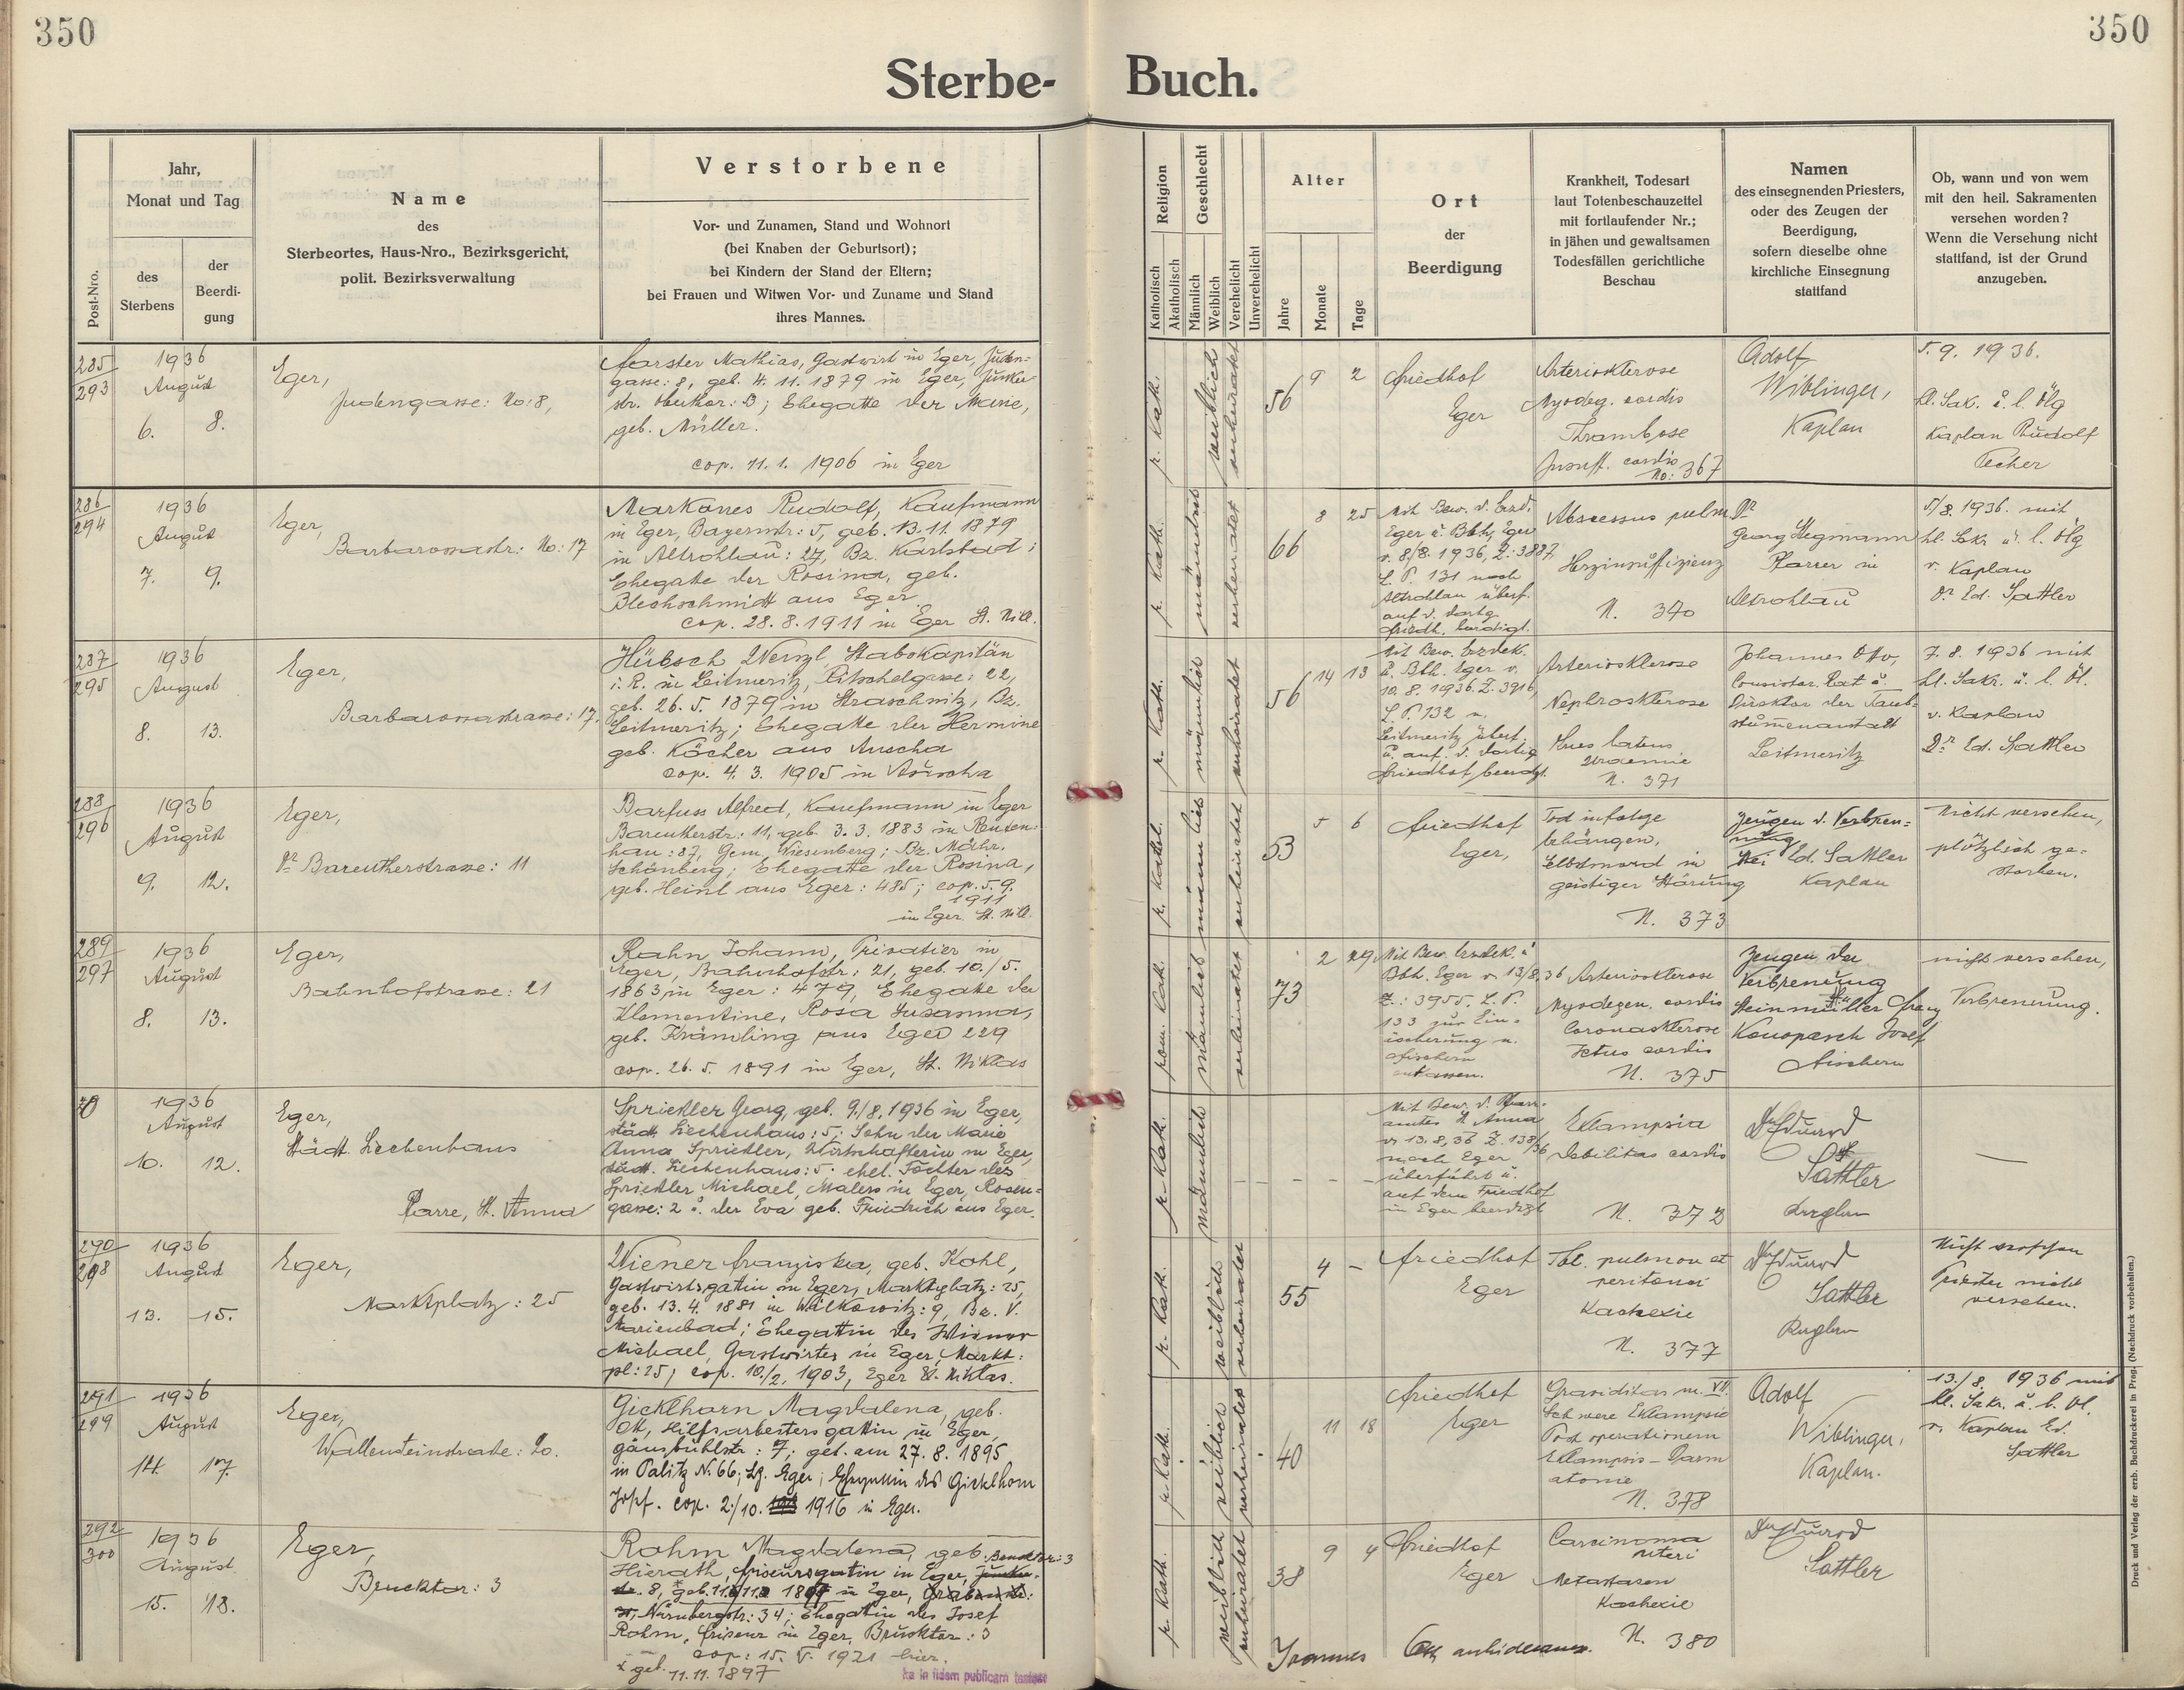 350
350
Sterbe-Buch.
Post-Nro.
Jahr,
Monat und Tag
des
Sterbens
der
Beerdi-
gung
Name
des
Sterbeortes, Haus-Nro., Bezirksgericht,
polit. Bezirksverwaltung
Verstorbene
Vor- und Zunamen, Stand und Wohnort
(bei Knaben der Geburtsort);
bei Kindern der Stand der Eltern;
bei Frauen und Witwen Vor- und Zuname und Stand
ihres Mannes.
Religion
Katholisch
Akatholisch
Geschlecht
Männlich
Weiblich
Verehelicht
Unverehelicht
Alter
Jahre
Monate
Tage
Ort
der
Beerdigung
Krankheit, Todesart
laut Totenbeschauzettel
mit fortlaufender Nr.;
in jähen und gewaltsamen
Todesfällen gerichtliche
Beschau
Namen
des einsegnenden Priesters,
oder des Zeugen der
Beerdigung,
sofern dieselbe ohne
kirchliche Einsegnung
stattfand
Ob, wann und von wem
mit den heil. Sakramenten
versehen worden?
Wenn die Versehung nicht
stattfand, ist der Grund
anzugeben.
285
293
1936
August
6. 8.
Eger,
Judengasse: No: 8,
Mathias, Gastwirt in Eger, Juden-
gasse: 8, geb. 4. 11. 1879 in Eger,
Ehegatte der Marie,
geb. Müller.
cop. 11. 1. 1906 in Eger
r. Kath.
weiblich
verheiratet
56 9 2
Friedhof
Eger
Arteriosklerose
Myodeg. cordis
Thrombose
Insuff. cordis
No: 367
Adolf
Wiblinger,
Kaplan
5. 9. 1936.
hl. Sak. u. l. Ölg
Kaplan Rudolf
286
294
1936
August
7. 9.
Eger,
Barbarossastr: No: 17
Markones Rudolf, Kaufmann
in Eger, Bayernstr: 5, geb. 13. 11. 1879
in Altrohlau: 27, Bz. Karlsbad;
Ehegatte der Rosina, geb.
Blechschmidt aus Eger
cop. 28. 8. 1911 in Eger St. Nikl.
r. Kath.
männlich
verheiratet
66 8 25
Mit Bew. d. Bzd.
Eger u. Bbh. Eger
v. 8/8. 1936, Z: 3887
L. P. 131 nach
Altrohlau überf.
auf d. dortg.
Friedh. beerdigt.
Abscessus pulm.
Herzinsuffizienz
N. 370
Dr
Georg Stegmann
Pfarrer in
Altrohlau
5/8. 1936. mit
hl. Sakr. u. l. Ölg
v. Kaplan
Dr. Ed. Sattler
287
295
1936
August
8. 13.
Eger,
Barbarossastrasse: 17.
Hübsch Wenzl, Stabskapitän
i. R. in Leitmeritz, 22,
geb. 26. 5. 1879 in Straschnitz, Bz.
Leitmeritz; Ehegatte der Hermine
geb. Köcher aus Auscha
cop. 4. 3. 1905 in Auscha
r. Kath.
männlich
verheiratet
56 14 13
Mit Bew. Bezdek.
u. Bbh. Eger v.
10. 8. 1936. Z. 3916,
L. P. 132 n.
Leitmeritz überf.
u. auf. d. dortig
Friedhof beerdgt.
Arteriosklerose
Nephrosklerose
N. 371
Johannes Otto,
Consistor. Rat u.
Direktor der Taub-
stummenanstalt
Leitmeritz
7. 8. 1936 mit
hl. Sakr. u. l. Öl.
v. Kaplan
Dr. Ed. Sattler
288
296
1936
August
9. 12.
Eger,
Dr Bareutherstrasse: 11
Barfuss Alfred, Kaufmann in Eger
Bareutherstr: 11, geb. 3. 3. 1883 in Reuten-
hau: 87, Gem. Wiesenberg; Bz. Mähr.
Schönberg; Ehegatte der Rosina,
geb. Heinl aus Eger: 485; cop. 5. 9.
1911
in Eger St. Nikl.
r. Kathol.
männlich
verheiratet
53 5 6
Friedhof
Eger,
Tod infolge
Erhängen,
Selbstmord in
geistiger Störung
N. 373
Zeugen d. Verbren-
nung
Ed. Sattler
Kaplan
Nicht versehen,
plötzlich ge-
storben.
289
297
1936
August
8. 13.
Eger,
Bahnhofstrasse: 21
Rahn Johann, Privatier in
Eger, Bahnhofstr: 21, geb. 10./5.
1863 in Eger: 479, Ehegatte der
Klementine, Rosa Susanna,
geb. Krämling aus Eger 229
cop. 26. 5. 1891 in Eger, St. Niklas
rom. Kath.
männlich
verheiratet
73 2 29
Mit Bew. Bezdek. u
Bbh. Eger v. 13/8. 36
Z.: 3955. L. P.
133 zur Ein-
äscherung n.
Arteriosklerose
Myodegen. cordis
Coronasklerose
Ictus cordis
N. 375
Zeugen der
Verbrennung
Steinmüller Franz
Konopasch Josef
nicht versehen,
Verbrennung.
1936
August
10. 12.
Eger,
Städt. Siechenhaus
Pfarre, St. Anna
Spriekler Georg, geb. 9./8. 1936 in Eger,
städt. Siechenhaus: 5; Sohn der Marie
Anna Spriekler, Wirtschafterin in Eger,
städt. Siechenhaus: 5. ehel. Tochter des
Spriekler Michael, Malers in Eger, Rosen-
gasse: 2 u. der Eva geb. Friedrich aus Eger.
r. Kath.
männlich
Mit Bew. d. Pfarr-
amtes St. Anna
v. 13. 8. 36 Z. 138/36
nach Eger
überführt u.
auf dem Friedhof
in Eger beerdigt
Eklampsia
Debilitas cordis
N. 372
Dr Eduard
Sattler
Kaplan
—
290
298
1936
August
13. 15.
Eger,
Marktplatz: 25
Wiener Franziska, geb. Kohl,
Gastwirtsgattin in Eger, Marktplatz: 25,
geb. 13. 4. 1881 in Wilkowitz: 9, Bz. V.
Marienbad; Ehegattin des Wiener
Michael, Gastwirtes in Eger, Markt-
pl: 25; cop. 10./2. 1903, Eger St. Niklas.
r. Kath.
weiblich
verheiratet
55 4 –
Friedhof
Eger
Tbl. pulmon et
peritonei
Kachexie
N. 377
Dr Eduard
Sattler
Kaplan
Nicht versehen
Priester nicht
versehen.
291
299
1936
August
14. 17.
Eger,
Wallensteinstrasse: 20.
Gicklhorn Magdalena, geb.
Ott, Hilfsarbeitersgattin in Eger,
Gänsbühlstr: 7; geb. am 27. 8. 1895
in Palitz N. 66; Bz. Eger; Ehegattin des Gicklhorn
Josef. cop. 2./10. 1916 in Eger.
r. Kath.
weiblich
verheiratet
40 11 18
Friedhof
Eger
Graviditas m. VII.
Schwere Eklampsie
Post operationem
Eklampsie - Darm
atonie
N. 378
Adolf
Wiblinger,
Kaplan.
13./8. 1936 mit
hl. Sakr. u. l. Öl.
v. Kaplan Ed.
Sattler
292
300
1936
August
15. 18.
Eger,
Brucktor: 3
Rohm Magdalena, geb. Brucktor: 3
Hierath, Friseursgattin in Eger,
8, geb. 11. 11. 1897 in Eger,
Nürnbergstr: 34; Ehegattin des Josef
Rohm, Friseur in Eger, Brucktor: 3
cop: 15. V. 1921 hier.
x geb. 11. 11. 1897
r. Kath.
weiblich
verheiratet
38 9 4
Friedhof
Eger
Carcinoma
uteri
Metastasen
Kachexie
N. 380
Dr Eduard
Sattler
Ioannes Ott archidecanus.
in fidem publicam
Druck und Verlag der erzb. Buchdruckerei in Prag. (Nachdruck vorbehalten.)